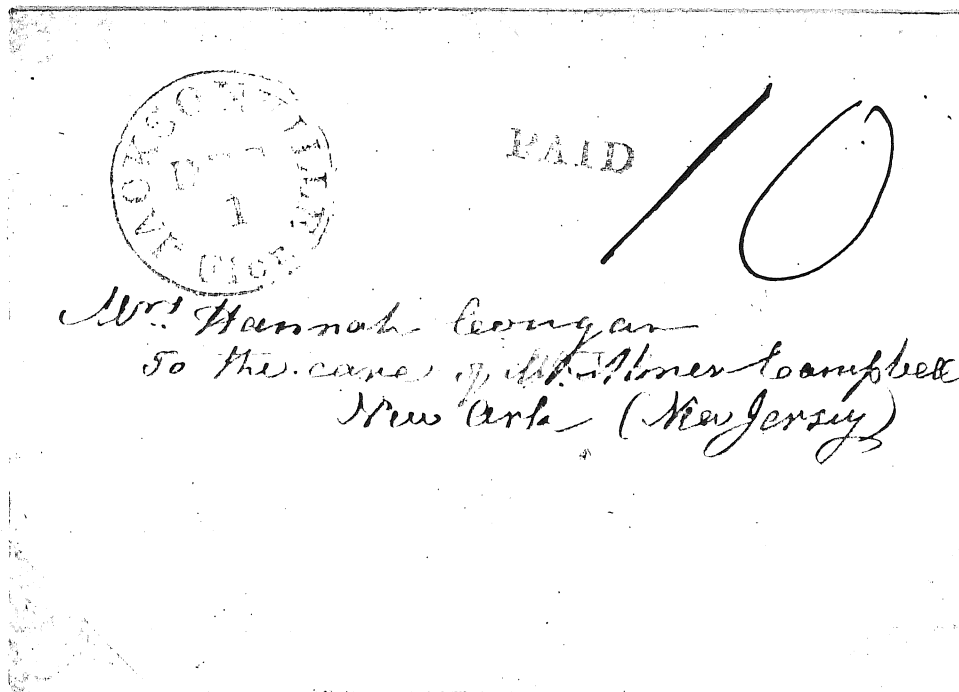 JACKSONVILLE
DEC
1
PAID
10
Mrs Hannah Congar
To the care of Mr. Abner Campbell
New Ark (New Jersey)